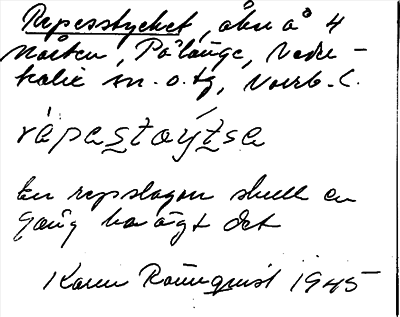 Repesstycket, åker å 4
Norken, Pålänge, Neder-
kalix sn. o. tg, Norrb. l.
ràpastaýtsa
En repslagare skulle en
gång ha ägt det
Karin Rönnquist 1945